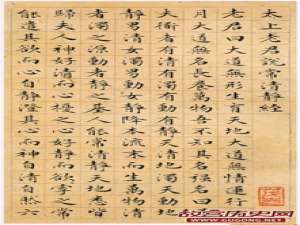 太上老君說常清靜經
老君曰大道無形生育天地大道無情運行日
月大道無名長養萬物吾不知其名強名曰道
夫道者有清有濁有動有靜天清地濁天動地
靜男清女濁男動女靜降本流末而生萬物清
者濁之源動者靜之基人能常清靜天地悉皆
歸夫人神好清而心擾之心好靜而欲牽之常
能遣其欲而心自靜澄其心而神自清自然六
WWW.GUGONG.NET